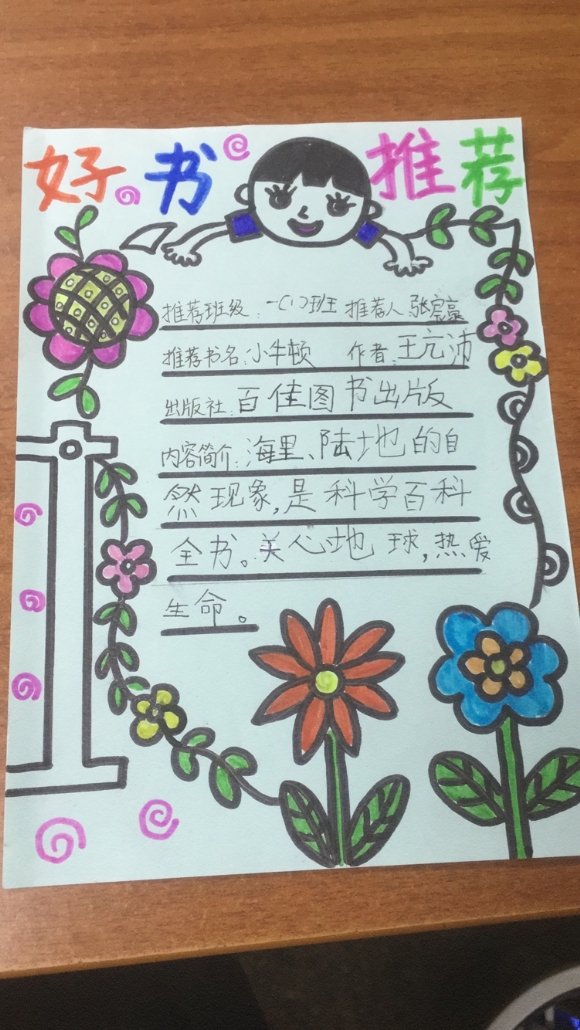 好书推荐
推荐班级:一(1)班 推荐人张宸熹
推荐书名:小牛顿 作者:王亢沛
出版社:百佳图书出版
内容简介:海里、陆地的自
然现象,是科学百科
全书。关心地球,热爱
生命。